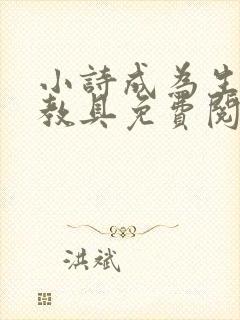 小詩成為生
教具免費閱
洪斌